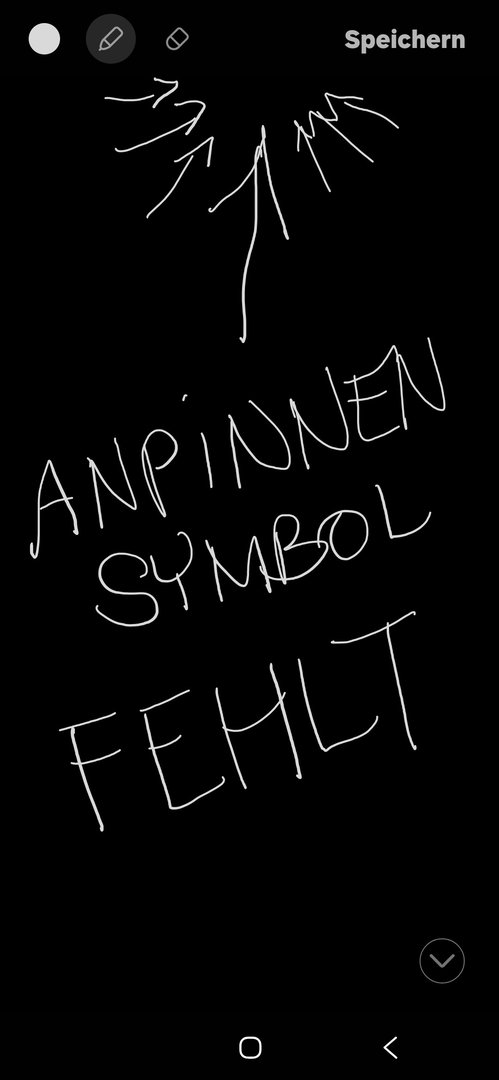 Speichern
ANPINNEN
SYMBOL
FEHLT